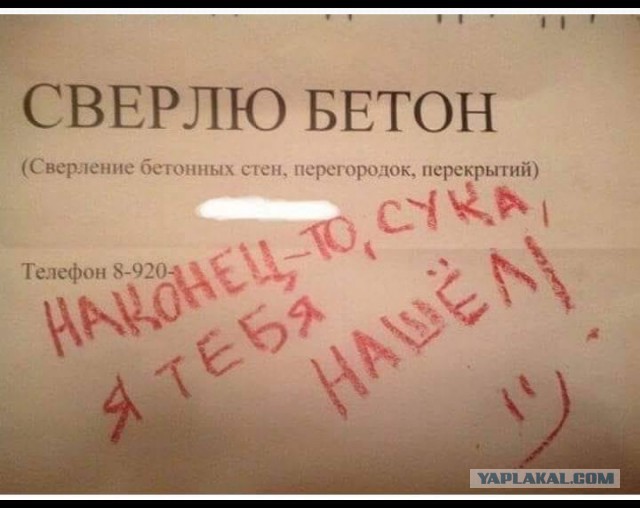 СВЕРЛЮ БЕТОН
(Сверление бетонных стен, перегородок, перекрытий)
Телефон 8-920-
НАКОНЕЦ-ТО, СУКА,
Я ТЕБЯ НАШЁЛ!
:)
YAPLAKAL.COM